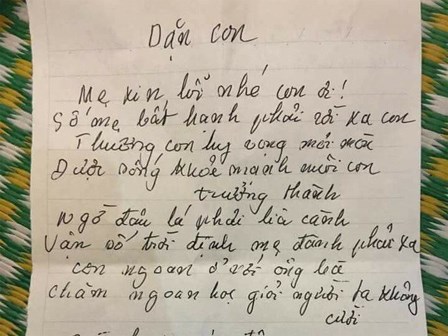 Dặn con
Mẹ xin lỗi nhé con ơi!
Số mẹ bất hạnh phải rời xa con
Thương con hy vọng mỏi mòn
Được sống khỏe mạnh nuôi con
trưởng thành
Ngờ đâu lá phải lìa cành
Vận số trời định mẹ đành phải xa
con ngoan ở với ông bà
chăm ngoan học giỏi người ta không
cười